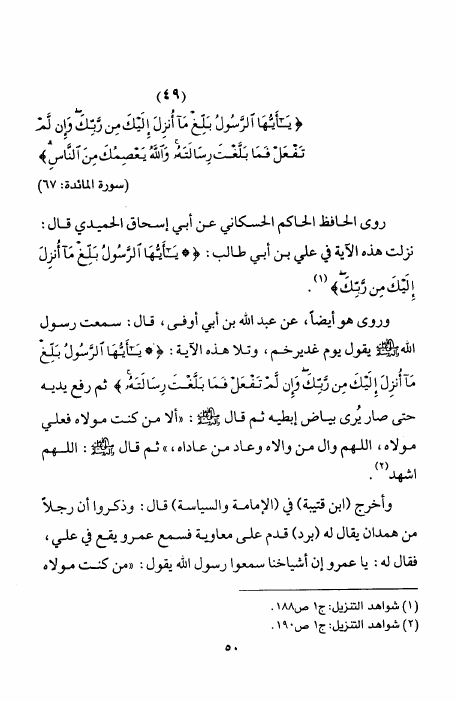 (٤٩)
﴿ يَٰٓأَيُّهَا ٱلرَّسُولُ بَلِّغْ مَآ أُنزِلَ إِلَيْكَ مِن رَّبِّكَ ۖ وَإِن لَّمْ
تَفْعَلْ فَمَا بَلَّغْتَ رِسَالَتَهُۥ ۚ وَٱللَّهُ يَعْصِمُكَ مِنَ ٱلنَّاسِ ۗ﴾
(سورة المائدة: ٦٧)
روى الحافظ الحاكم الحسكاني عن أبي إسحاق الحميدي قال:
نزلت هذه الآية في علي بن أبي طالب: ﴿ * يَٰٓأَيُّهَا ٱلرَّسُولُ بَلِّغْ مَآ أُنزِلَ
إِلَيْكَ مِن رَّبِّكَ ۖ﴾ (١).
وروى هو أيضاً، عن عبد الله بن أبي أوفى، قال: سمعت رسول
الله ﷺ يقول يوم غدير خم، وتلا هذه الآية: ﴿ * يَٰٓأَيُّهَا ٱلرَّسُولُ بَلِّغْ
مَآ أُنزِلَ إِلَيْكَ مِن رَّبِّكَ ۖ وَإِن لَّمْ تَفْعَلْ فَمَا بَلَّغْتَ رِسَالَتَهُۥ ۚ ﴾ ثم رفع يديه
حتى صار يُرى بياض إبطيه ثم قال ﷺ: «ألا من كنت مولاه فعلي
مولاه، اللهم وال من والاه وعاد من عاداه،» ثم قال ﷺ: اللهم
اشهد(٢).
وأخرج (ابن قتيبة) في (الإمامة والسياسة) قال: وذكروا أن رجلاً
من همدان يقال له (برد) قدم على معاوية فسمع عمرو يقع في علي،
فقال له: يا عمرو إن أشياخنا سمعوا رسول الله يقول: «من كنت مولاه
(١) شواهد التنزيل: ج١ ص١٨٨.
(٢) شواهد التنزيل: ج١ ص١٩٠.
٥٠